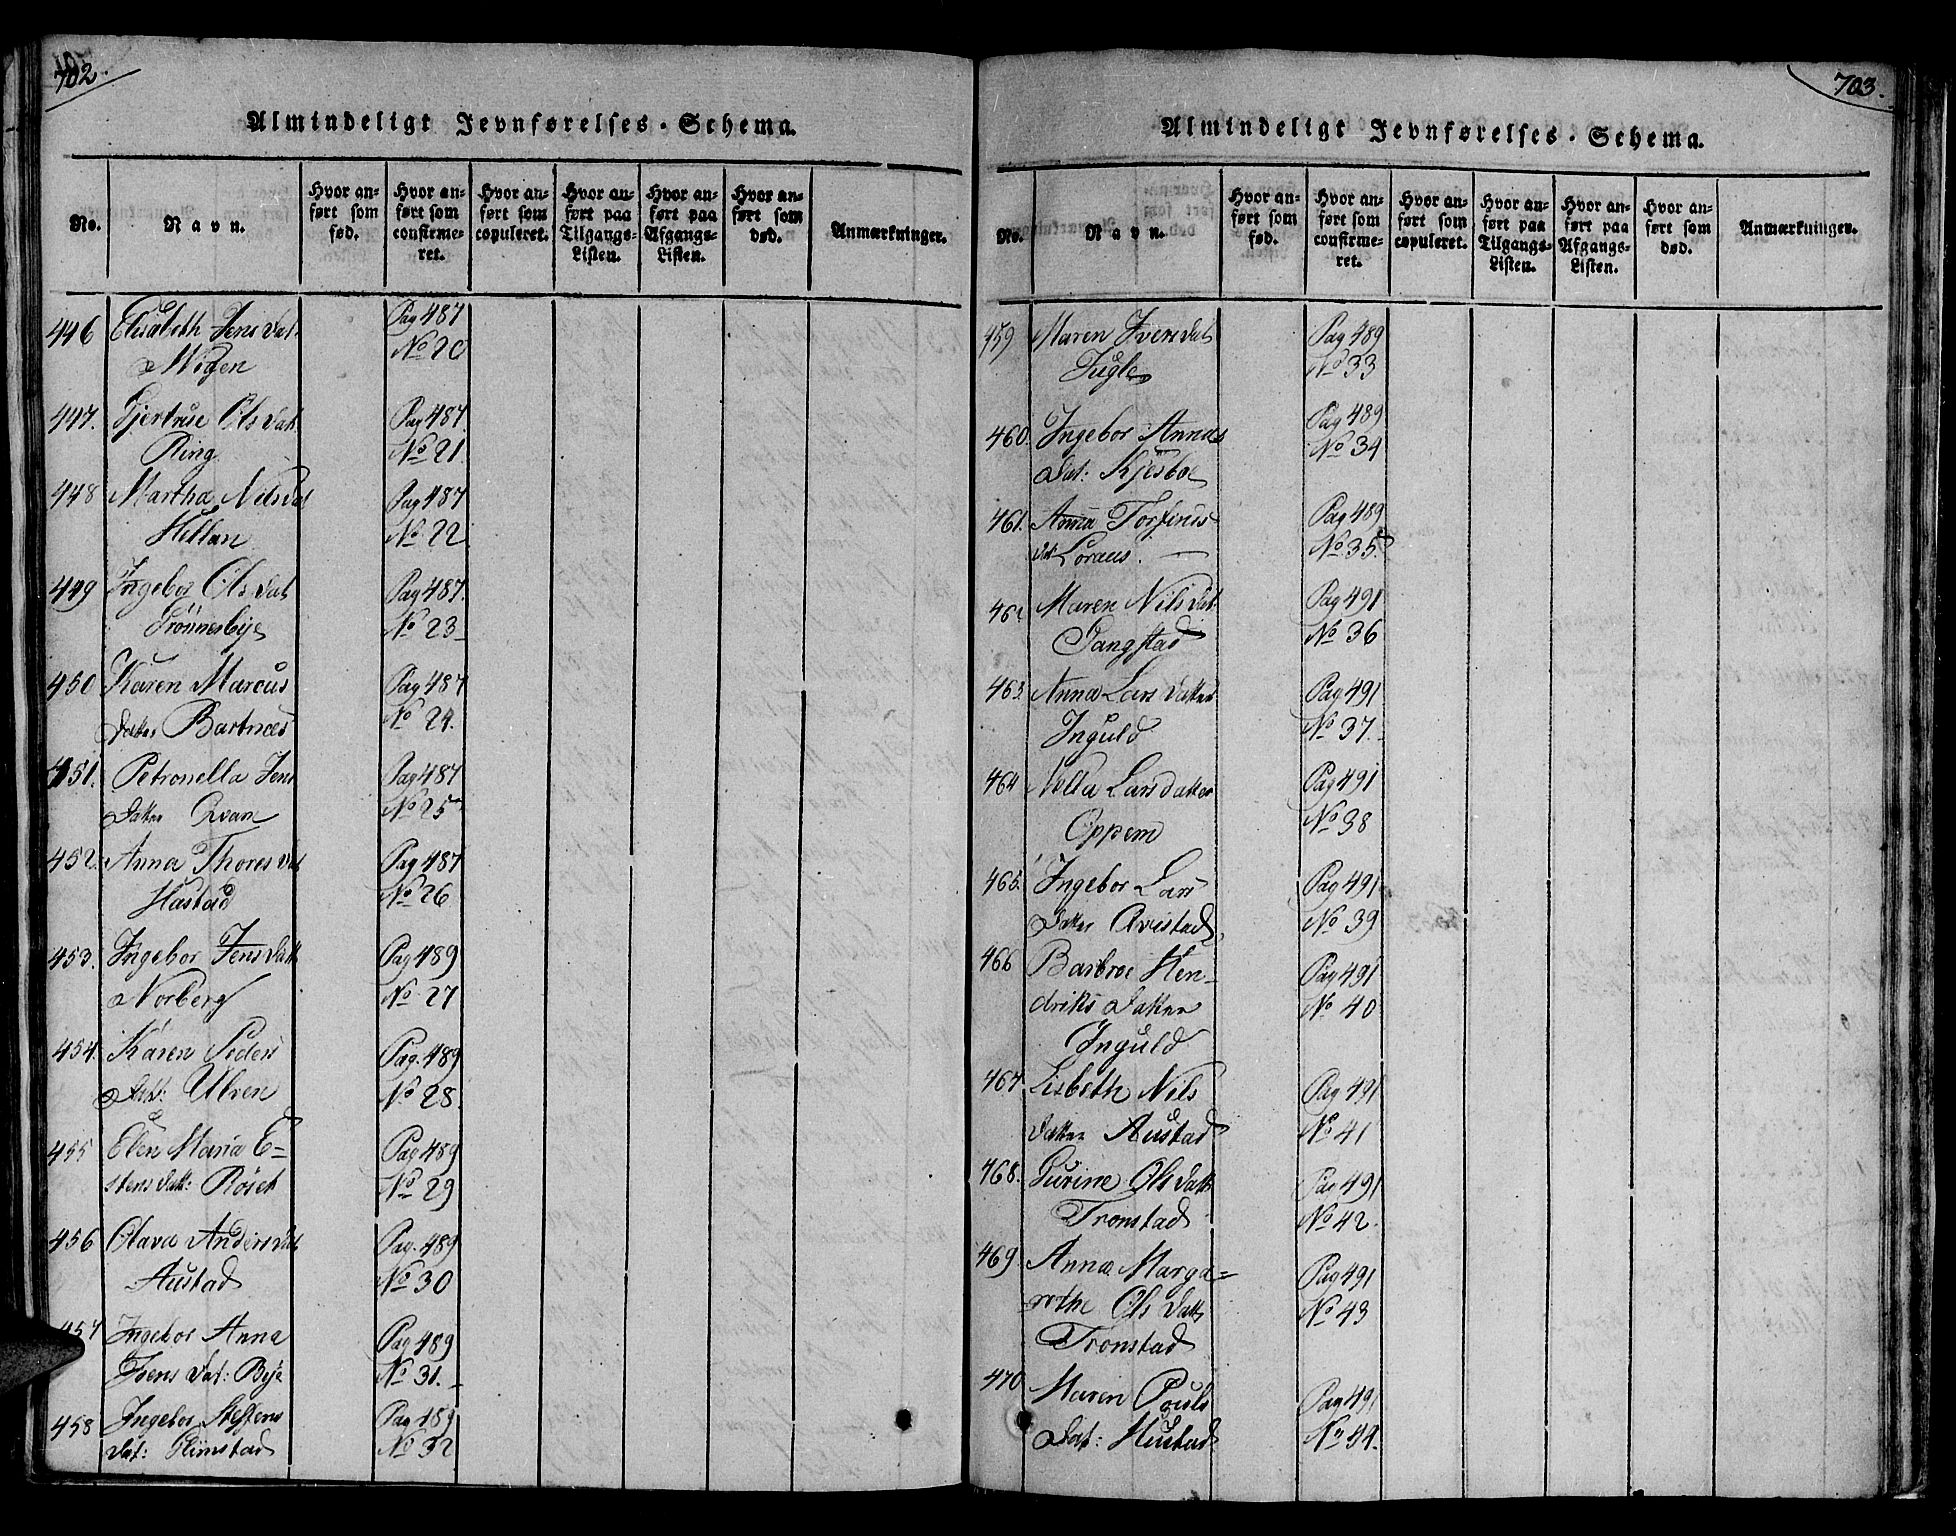 702.
Almindeligt Jevnførelses-Schema.
No.
Navn.
Hvor anført som fød.
Hvor anført som confirmeret.
Hvor anført som copuleret.
Hvor anført paa Tilgangs-Listen.
Hvor anført paa Afgangs-Listen.
Hvor anført som død.
Anmærkninger.
446 Elisabeth Jens Dat. Pag 487
Wigen No 20
447. Gjertruse Ols Dat. Pag 487.
Ring No 21
448 Martha Nils Dat Pag 487
Hellan No 22
449 Ingebor Ols Dat Pag 487.
Trönnesbye No 23
450 Karen Marcus Pag 487
Datter Bartnæs No 24.
451. Petronella Jens Pag 487
Datter Qvam No 25
452. Anna Thores Dat Pag 487
Hastad No 26
453. Ingebor Jens Datt Pag 489
Norberg No 27
454. Karen Peders Pag. 489
Dat: Ulven No 28.
455 Elen Maria E= Pag 489
stens Datt: Röset No 29
456 Olava Anders Dat Pag. 489
Austad No 30
457 Ingebor Anna Pag 489
Ivens Dat: Bye No 31.
458 Ingebor Steffens Pag 489
Dat: Glimstad No 32
703.
Almindeligt Jevnførelses-Schema.
No.
Navn.
Hvor anført som fød.
Hvor anført som confirmeret.
Hvor anført som copuleret.
Hvor anført paa Tilgangs-Listen.
Hvor anført paa Afgangs-Listen.
Hvor anført som død.
Anmærkningen.
459 Maren Ivers Dat Pag 489
Fugle No 33
460. Ingebor Annas Pag 489
Dat: Kjesboe No 34
461. Anna Torfins Pag 489
Dat Loraas. No 35
462 Maren Nils Dat Pag 491
Sangstad No 36
463. Anna Lars Datter Pag 491
Inguld No 37.
464 Nella Lars Datter Pag 491
Oppem No 38
465. Ingebor Lars Pag 491
Datter Qvistad No 39
466 Barbroe Hen= Pag 491
driks Datter No 40
Inguld
467. Lisbeth Nils Pag 491
Datter Austad No 41
468. Gurine Ols Datt Pag 491
Tronstad No 42.
469. Anna Marga= Pag 491
rethe Ols Datt No 43
Tronstad
470 Maren Pouls Pag 491
Dat: Hustad No 44.